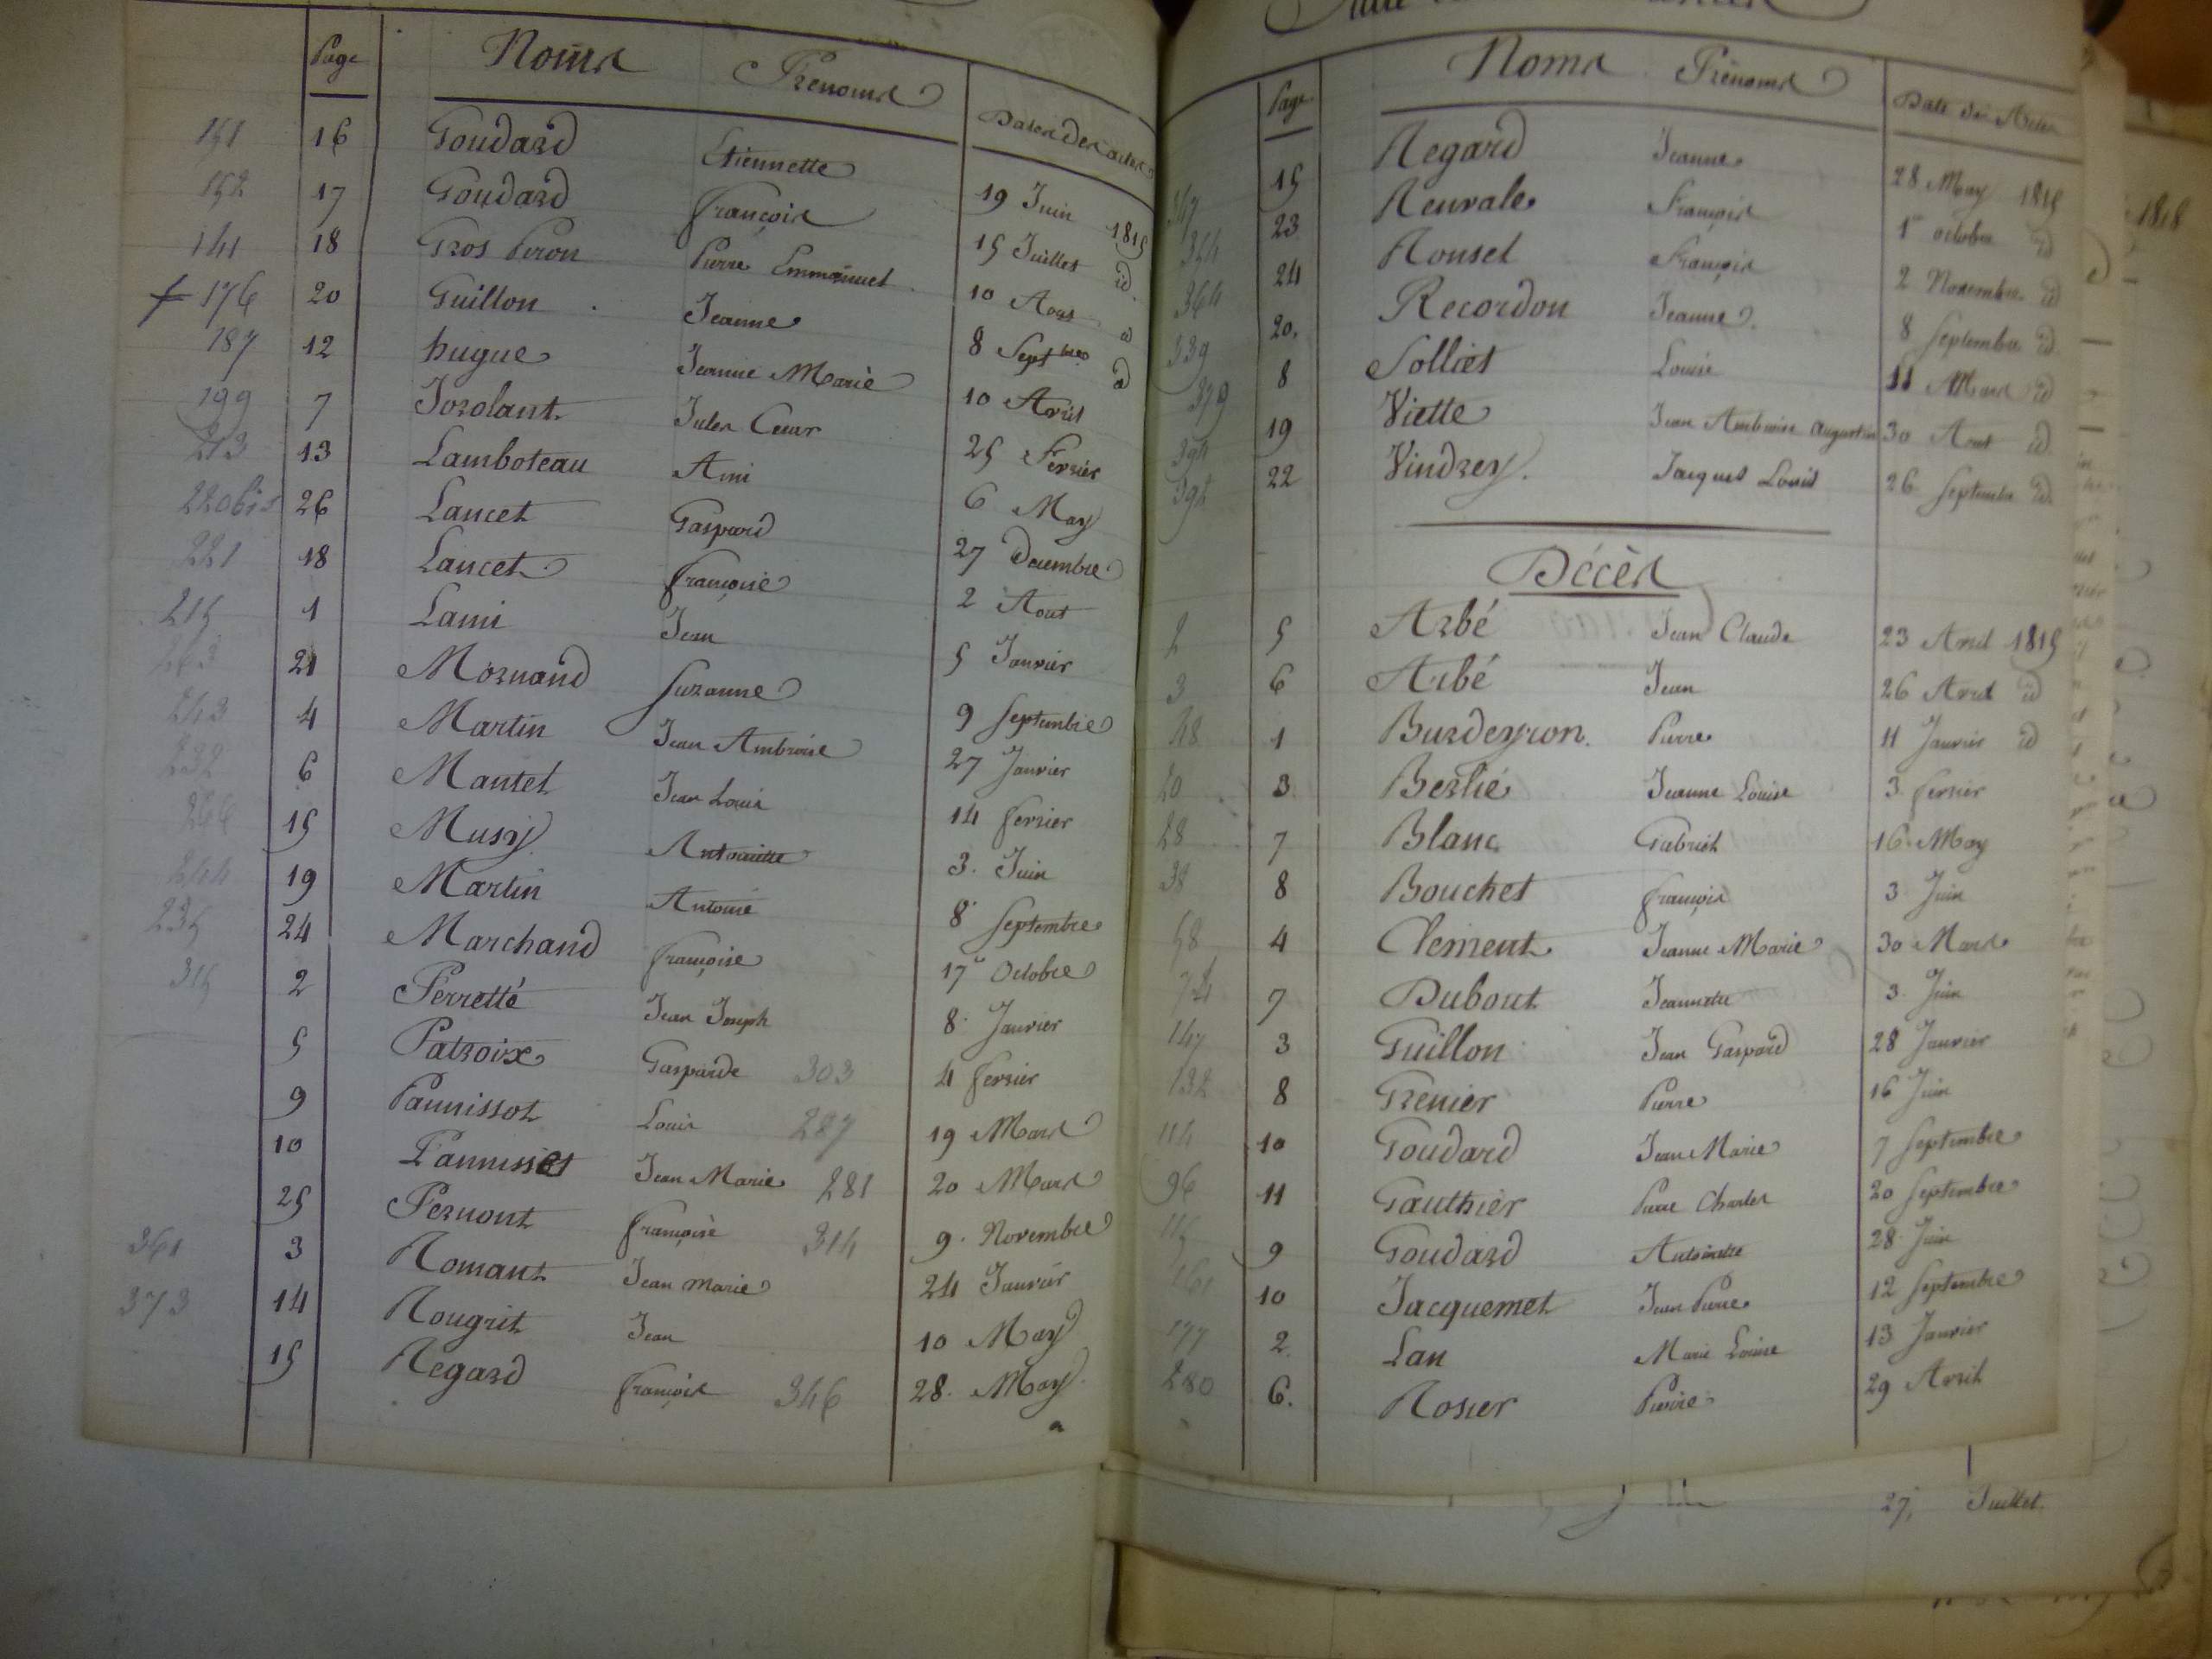 Page Noms Prénoms Dates des actes
151 16 Goudard Etiennette 19 Juin 1815
152 17 Goudard françois 15 Juillet id
141 18 Gros Piron Pierre Emmanuel 10 Aout id
176 20 Guillon Jeanne 8 Septbre id
187 12 hugue Jeanne Marie 10 Avril
199 7 Jorolant Jules Cesar 25 Fevrier
213 13 Lamboteau Ami 6 May
220bis 26 Lancet Gaspard 27 Decembre
221 18 Lancet françoise 2 Aout
215 1 Lami Jean 5 Janvier
263 21 Mornand Suzanne 9 Septembre
243 4 Martin Jean Ambroise 27 Janvier
232 6 Mantel Jean Louis 14 fevrier
266 15 Musy Antoinette 3 Juin
244 19 Martin Antoine 8 Septembre
235 24 Marchand françoise 17 Octobre
315 2 Perretté Jean Joseph 8 Janvier
5 Patroix Gasparde 303 4 fevrier
9 Pannissot Louis 287 19 Mars
10 Pannisset Jean Marie 281 20 Mars
25 Pernont françoise 314 9 Novembre
361 3 Romant Jean Marie 24 Janvier
373 14 Rougrit Jean 10 May
15 Regard françois 346 28 May
Page Noms Prénoms Date des Actes
347 15 Regard Jeanne 28 May 1815
354 23 Reuvale François 1er octobre id
364 24 Rousel François 2 Novembre id
339 20 Recordon Jeanne 8 Septembre id
379 8 Solliet Louise 11 Mars id
394 19 Viette Jean Ambroise Augustin 30 Aout id
392 22 Vindrey Jacques Louis 26 Septembre id
Décès
2 5 Arbé Jean Claude 23 Avril 1815
3 6 Arbé Jean 26 Avril id
48 1 Burdeyron Pierre 11 Janvier id
20 3 Berlié Jeanne Louise 3 fevrier
28 7 Blanc Gabriel 16 May
38 8 Bouchet françois 3 Juin
58 4 Clement Jeanne Marie 30 Mars
74 7 Dubout Jeannette 3 Juin
147 3 Guillon Jean Gaspard 28 Janvier
132 8 Grenier Pierre 16 Juin
114 10 Goudard Jean Marie 7 Septembre
96 11 Gauthier Pierre Charles 20 Septembre
115 9 Goudard Antoinette 28 Juin
161 10 Jacquemet Jean Pierre 12 Septembre
177 2 Lan Marie Louise 13 Janvier
280 6 Rosier Pierre 29 Avril
27 Juillet
1818